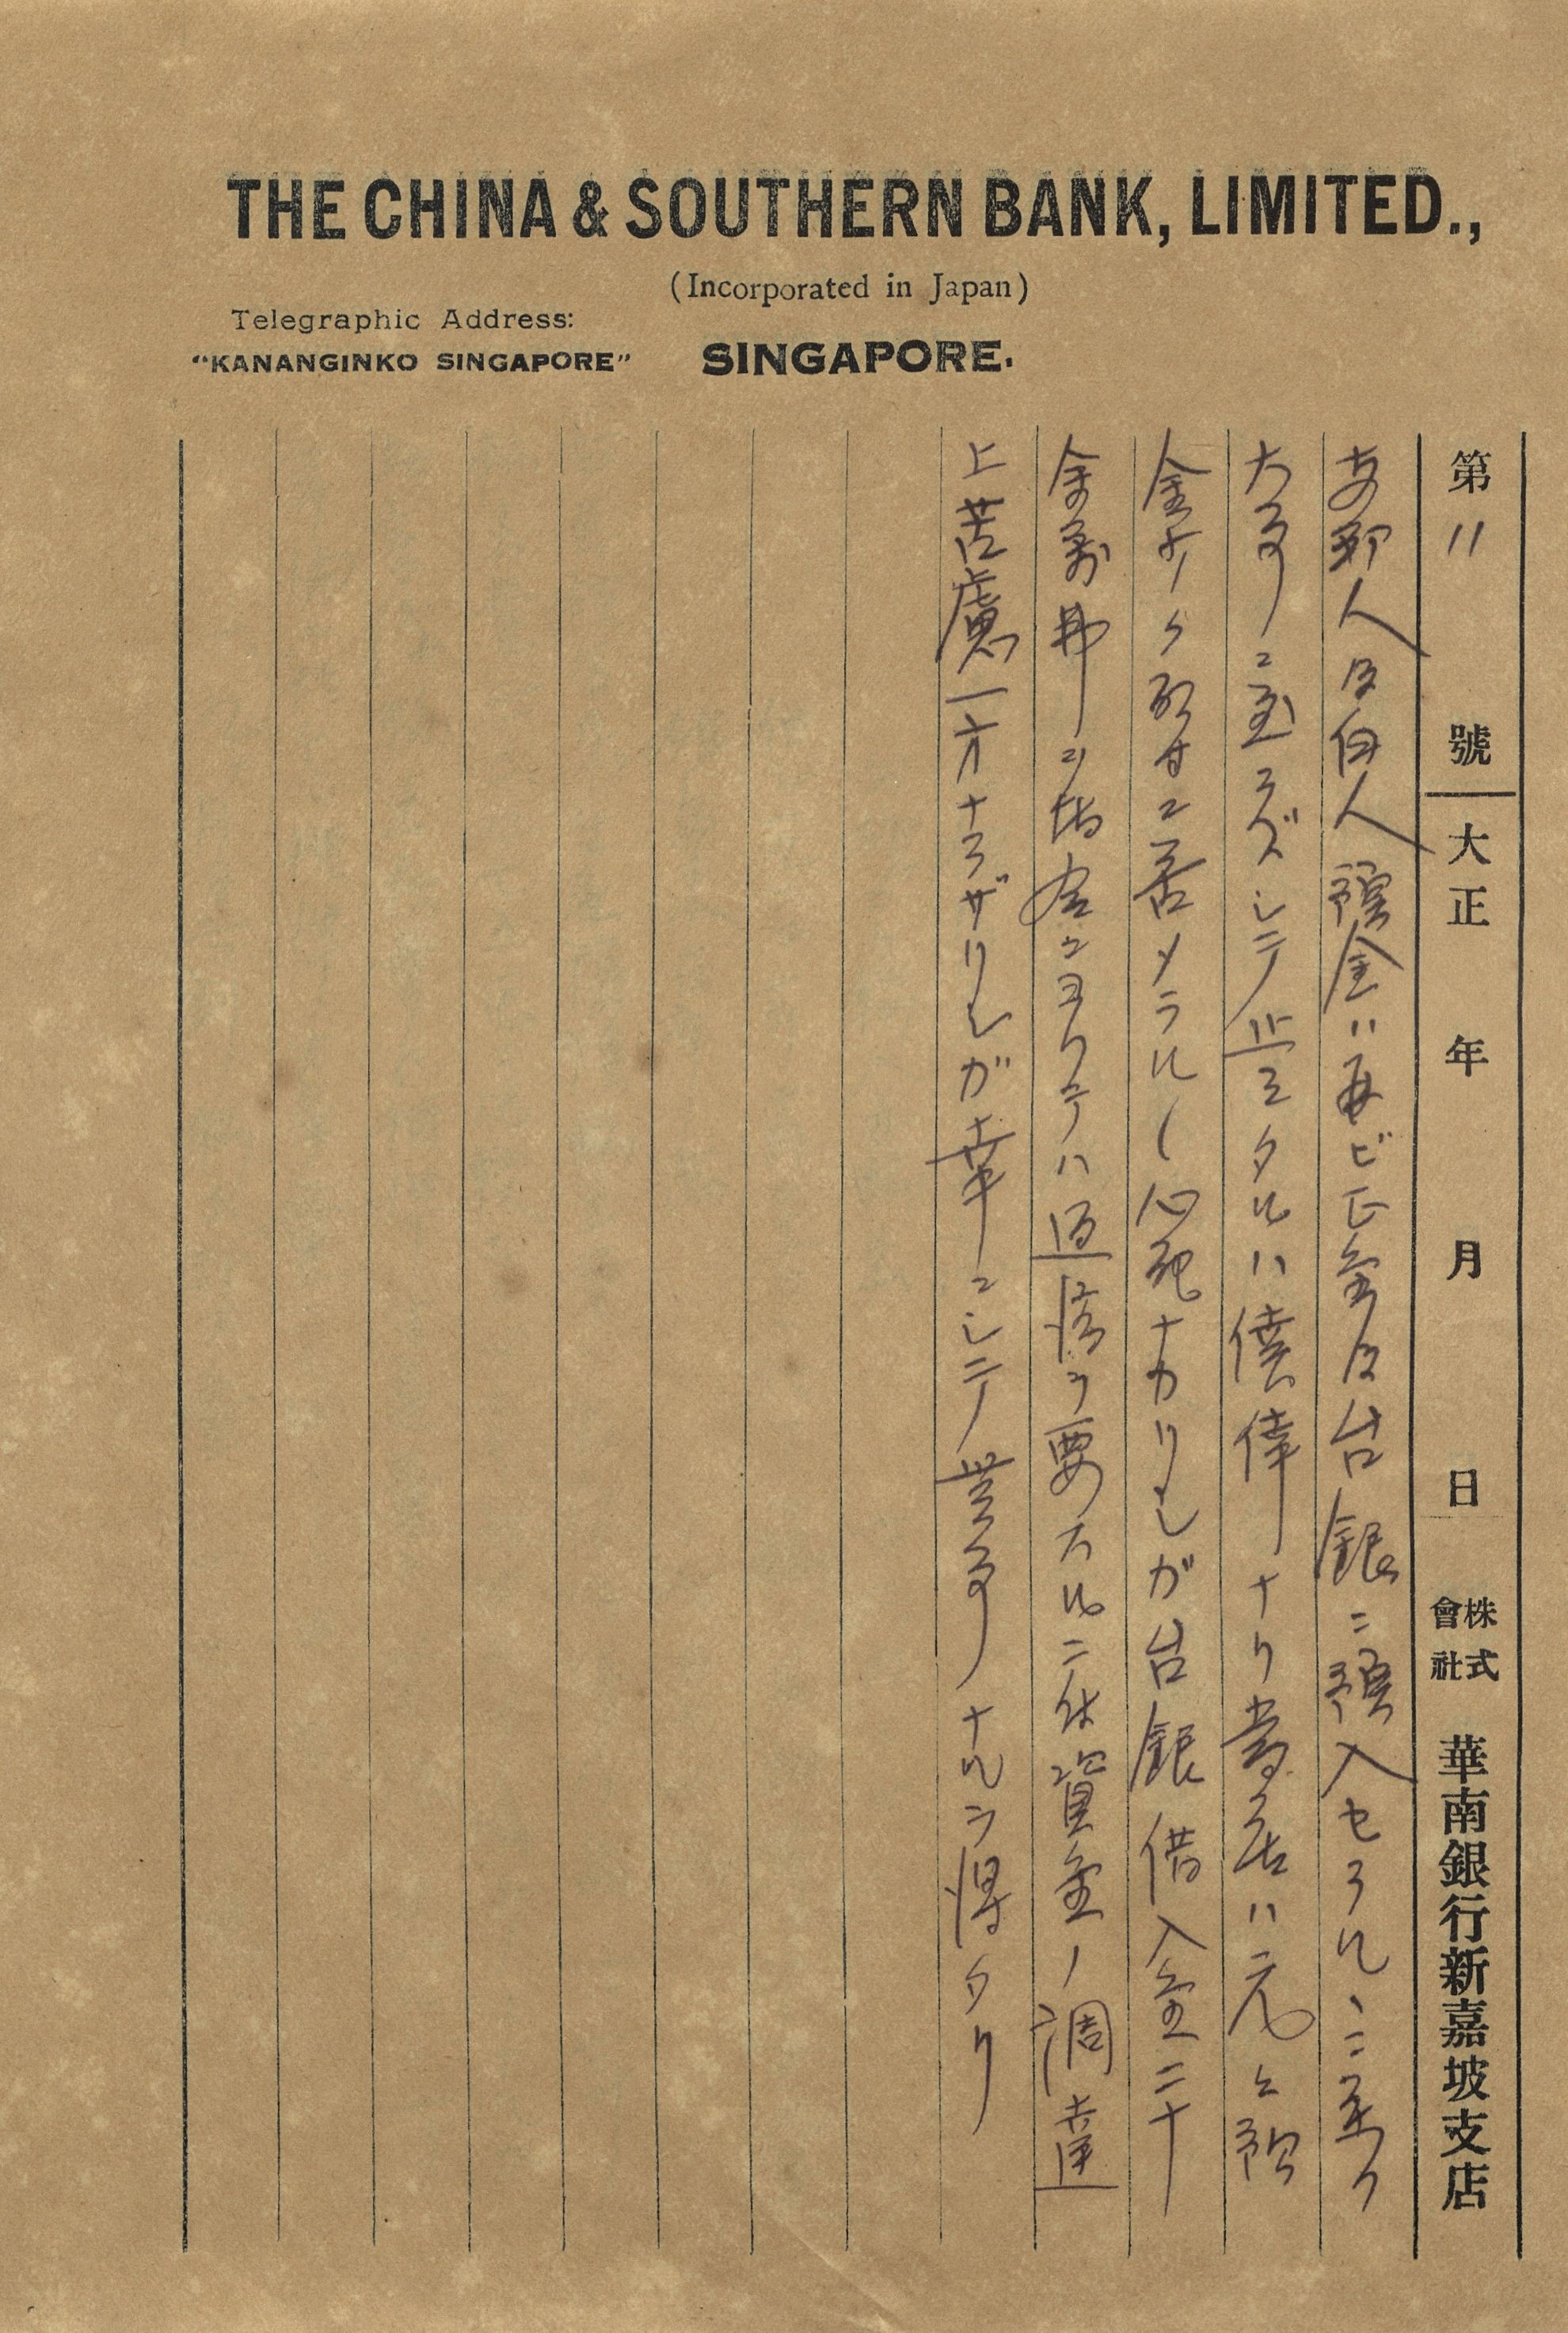 THE CHINA & SOUTHERN BANK, LIMITED.,
(Incorporated in Japan)
Telegraphic Address:
"KANANGINKO SINGAPORE"
SINGAPORE.
第 11 號 大正 年 月 日 株式會社 華南銀行新嘉坡支店
支那人及白人預金ハ再ビ正金及台銀ニ預入セラルヽニ至ク
大事ニ至ラズシテ止ミタルハ僥倖ナリ当店ハ元ヨ預
金少ク取付ニ苦メラルヽ心配ナカリシガ台銀借入金二十
余萬弗ヲ場合ニヨリテハ返済ヲ要スルニ付資金ノ調達
上苦慮一方ナラザリシガ幸ニシテ無事ナルヲ得タリ